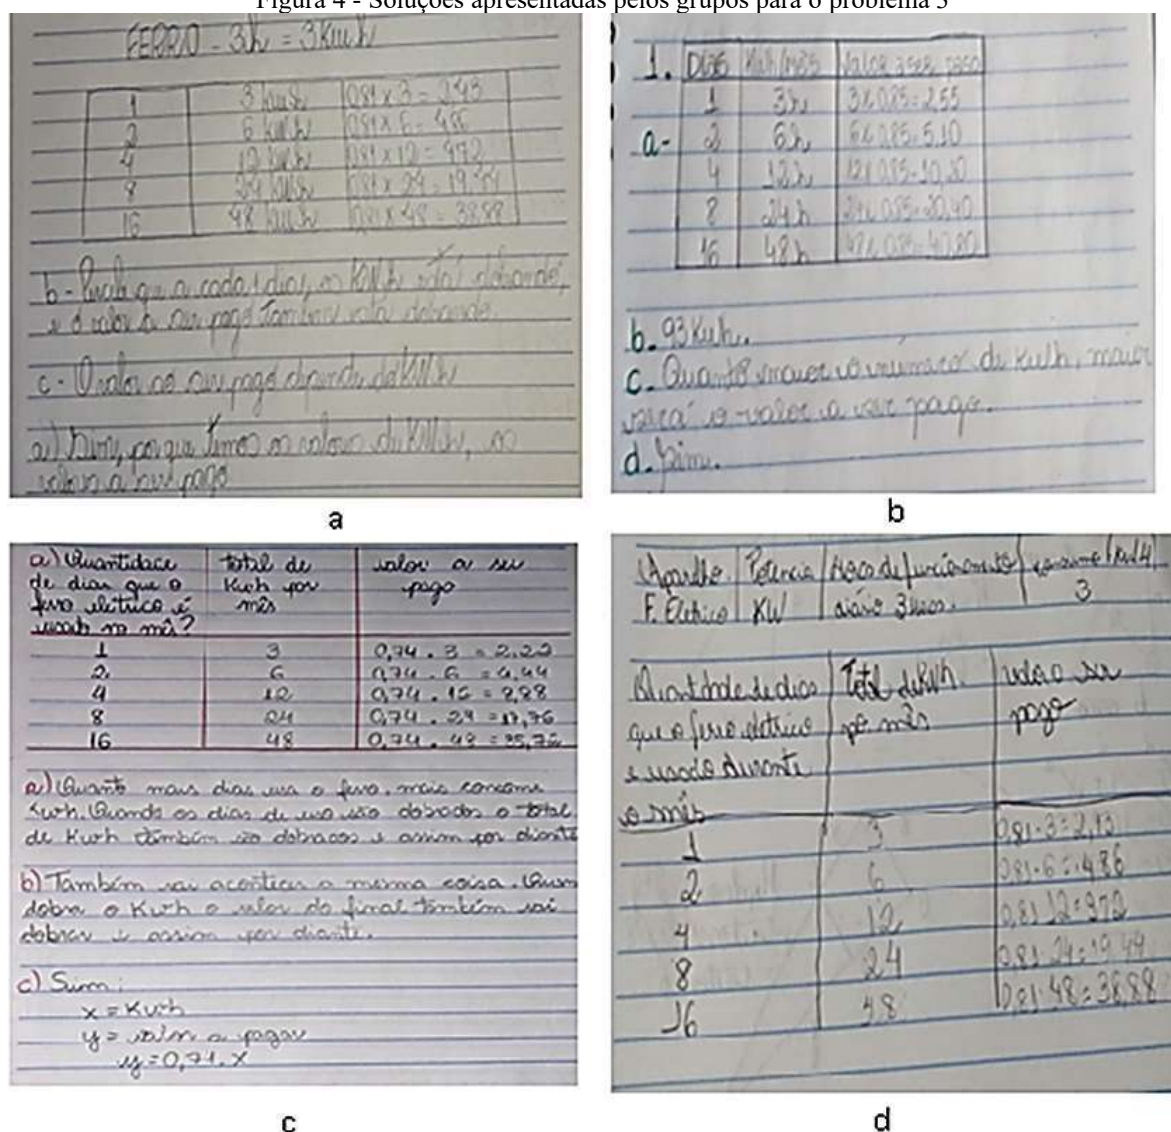 Figura 4 - Soluções apresentadas pelos grupos para o problema 3
FERRO - 3h = 3Kwh
1 3 kwh 0,81 x 3 = 2,43
2 6 kwh 0,81 x 6 = 4,86
4 12 kwh 0,81 x 12 = 9,72
8 24 kwh 0,81 x 24 = 19,44
16 48 kwh 0,81 x 48 = 38,88
b - que a cada dias, os KWh está dobrando,
e o valor a ser pago também está dobrando.
c - O valor ao ser pago depende do KWh
a) Sim, porque temos os valores de KWh, os
valores a ser pago
a
1. DIAS Kwh/mês Valor a ser pago
a- 1 3h 3x0,85=2,55
2 6h 6x0,85=5,10
4 12h 12x0,85=10,20
8 24h 24x0,85=20,40
16 48h 48x0,85=40,80
b. 93 Kwh.
c. Quanto maior o número de Kwh, maior
será o valor a ser pago.
d. Sim.
b
a) Quantidade de dias que o ferro elétrico é usado no mês?
total de Kwh por mês
valor a ser pago
1 3 0,74 . 3 = 2,22
2 6 0,74 . 6 = 4,44
4 12 0,74 . 12 = 8,88
8 24 0,74 . 24 = 17,76
16 48 0,74 . 48 = 35,72
a) Quanto mais dias usa o ferro, mais consome
Kwh. Quando os dias de uso são dobrados o total
de Kwh também são dobrados e assim por diante
b) Também vai acontecer a mesma coisa. Quan
dobra o Kwh o valor do final também vai
dobrar e assim por diante.
c) Sim:
x = Kwh
y = valor a pagar
y = 0,74 . x
c
Aparelho Potencia Horas de funcionamento consumo (Kwh)
F. Elétrico KW diário 3 horas. 3
Quantidade de dias
que o ferro elétrico
é usado durante
o mês
Total de Kwh
por mês
valor a ser
pago
1 3 0,81.3=2,13
2 6 0,81.6=4,86
4 12 0,81.12=9,72
8 24 0,81.24=19,44
16 48 0,81.48=38,88
d